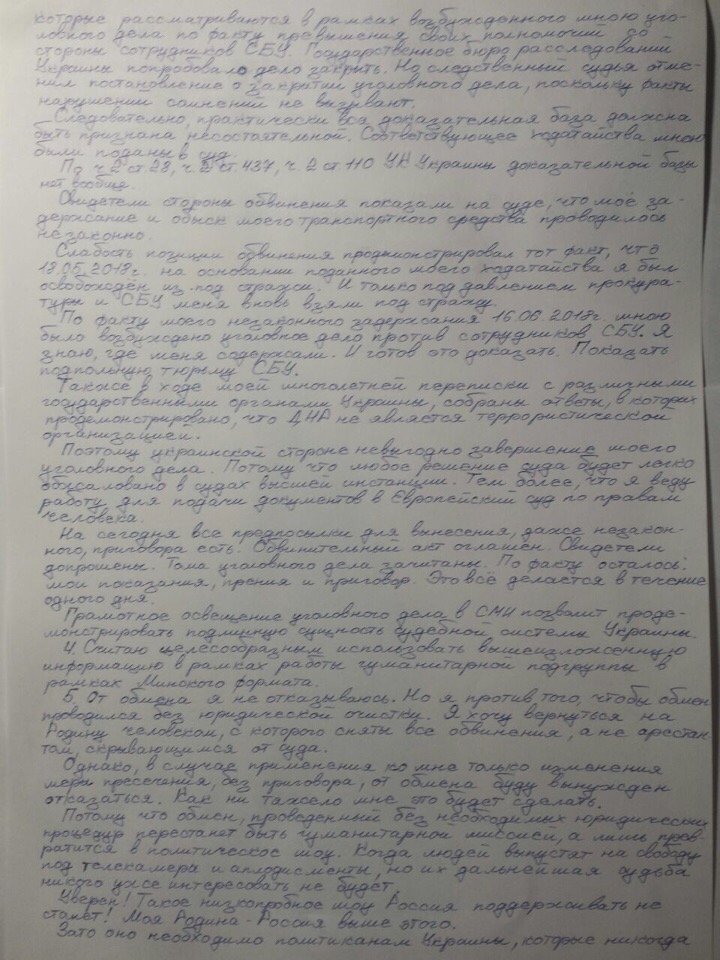 которые рассматриваются в рамках возбужденного мною уго-
ловного дела по факту превышения своих полномочий со
стороны сотрудников СБУ. Государственное бюро расследований
Украины попробовало дело закрыть. Но следственный судья отме-
нил постановление о закрытии уголовного дела, поскольку факты
нарушений сомнений не вызывают.
Следовательно, практически вся доказательная база должна
быть признана несостоятельной. Соответствующее ходатайства мною
были поданы в суд.
По ч.2 ст.28, ч.2 ст.437, ч.2 ст.110 УК Украины доказательной базы
нет вообще.
Свидетели стороны обвинения показали на суде, что моё за-
держание и обыск моего транспортного средства проводилось
незаконно.
Слабость позиции обвинения продемонстрировал тот факт, что
18.05.2018г. на основании поданного моего ходатайства я был
освобождён из под стражи. И только под давлением прокура-
туры и СБУ меня вновь взяли под стражу.
По факту моего незаконного задержания 16.06.2018г. мною
было возбуждено уголовное дело против сотрудников СБУ. Я
знаю, где меня содержали. И готов это доказать. Показать
подпольную тюрьму СБУ.
Также в ходе моей многолетней переписки с различными
государственными органами Украины, собраны ответы, в которых
продемонстрировано, что ДНР не является террористической
организацией.
Поэтому украинской стороне невыгодно завершение моего
уголовного дела. Потому что любое решение суда будет легко
обжаловано в судах высшей инстанции. Тем более, что я веду
работу для подачи документов в Европейский суд по правам
человека.
На сегодня все предпосылки для вынесения, даже незакон-
ного, приговора есть. Обвинительный акт оглашен. Свидетели
допрошены. Тома уголовного дела зачитаны. По факту осталось:
мои показания, прения и приговор. Это всё делается в течение
одного дня.
Грамотное освещение уголовного дела в СМИ позволит проде-
монстрировать подлинную сущность судебной системы Украины.
4. Считаю целесообразным использовать вышеизложенную
информацию в рамках работы гуманитарной подгруппы в
рамках Минского формата.
5. От обмена я не отказываюсь. Но я против того, чтобы обмен
проводился без юридической очистки. Я хочу вернуться на
Родину человеком, с которого сняты все обвинения, а не арестан-
том, скрывающимся от суда.
Однако, в случае применения ко мне только изменения
меры пресечения, без приговора, от обмена буду вынужден
отказаться. Как ни тяжело мне это будет сделать.
Потому что обмен, проведенный без необходимых юридических
процедур перестанет быть гуманитарной миссией, а лишь прев-
ратится в политическое шоу. Когда людей выпустят на свободу
под телекамеры и аплодисменты, но их дальнейшая судьба
никого уже интересовать не будет.
Уверен! Такое низкопробное шоу Россия поддерживать не
станет! Моя Родина - Россия выше этого.
Зато оно необходимо политиканам Украины, которые никогда